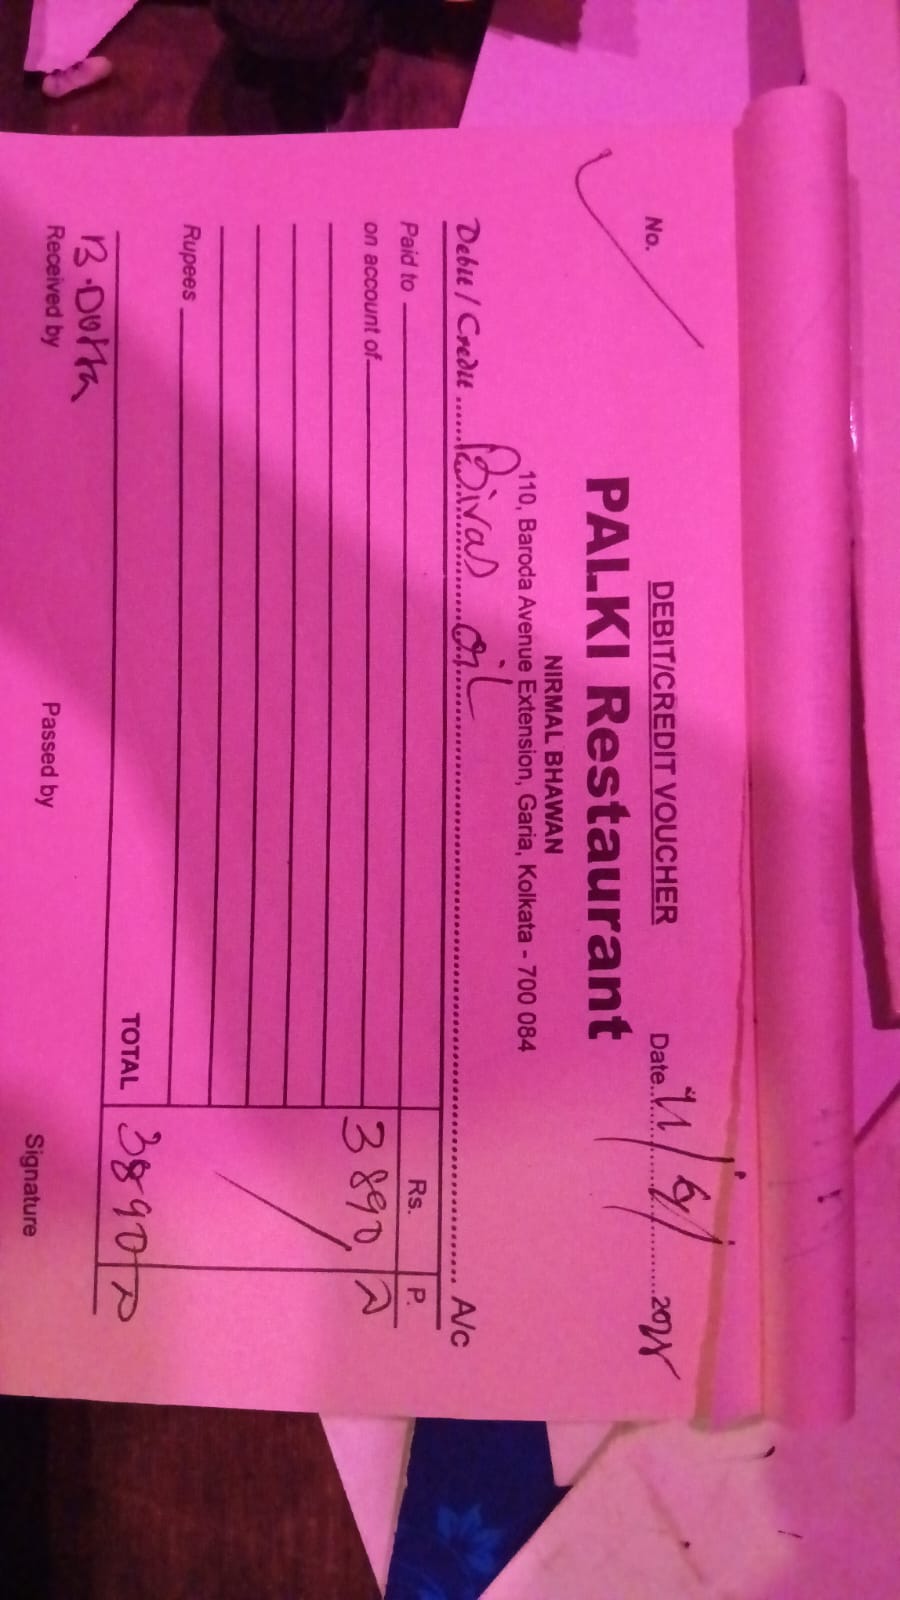 DEBIT/CREDIT VOUCHER
No.
Date
PALKI Restaurant
NIRMAL BHAWAN
110, Baroda Avenue Extension, Garia, Kolkata - 700 084
Debit / Credit Bivas oil A/c
Paid to Rs. P.
on account of 3890
Rupees
TOTAL 3890
B. Dutta
Received by Passed by Signature